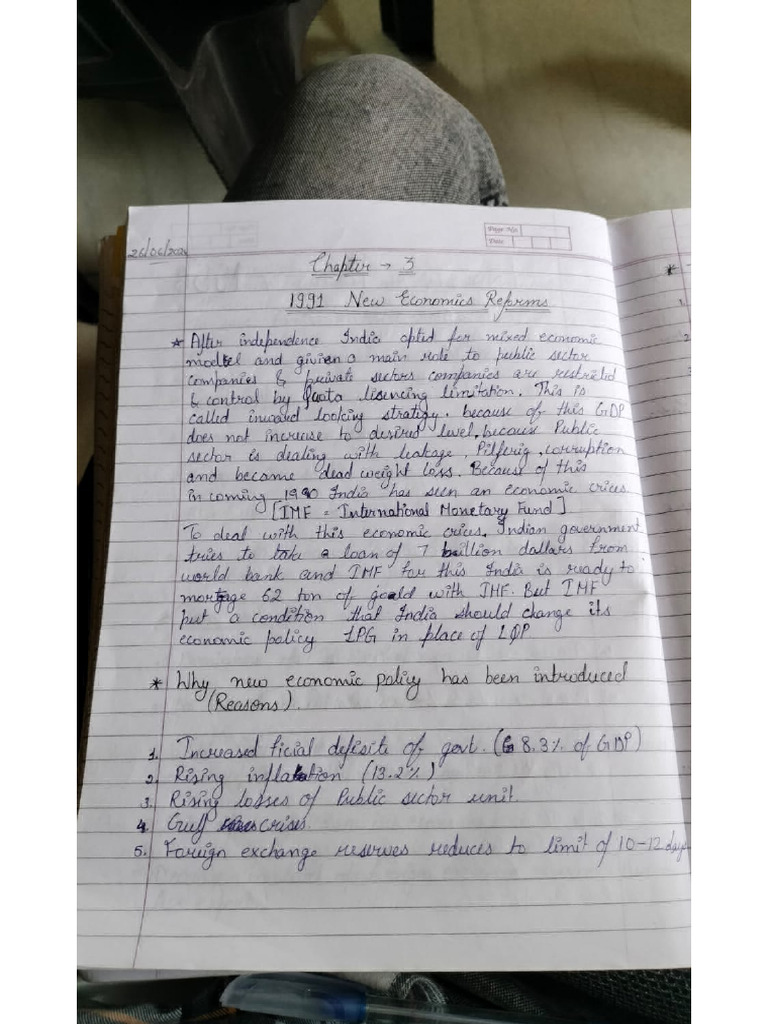 26/06/202
Page No.
Date
Chapter → 3
1991 New Economics Reforms
* After independence India opted for mixed economic
model and given a main role to public sector
companies & private sectors companies are restricted
& control by Quota lisencing limitation. This is
called inward looking strategy. because of this GDP
does not increase to desired level. because Public
sector is dealing with leakage, Pilferig, corruption
and became dead weight loss. Because of this
in coming 1990 India has seen an economic crices
[IMF = International Monetary Fund]
To deal with this economic crices. Indian government
tries to take a loan of 7 billion dollars from
world bank and IMF for this India is ready to
mortgage 62 ton of gold with IMF. But IMF
put a condition that India should change its
economic policy LPG in place of LQP
* Why new economic policy has been introduced
(Reasons).
1. Increased ficial defisite of govt. (8.3% of GDP)
2. Rising inflation (13.2%)
3. Rising losses of Public sector unit.
4. Gulf crises.
5. Foreign exchange reserves reduces to limit of 10-12 day
*
1.
2
3